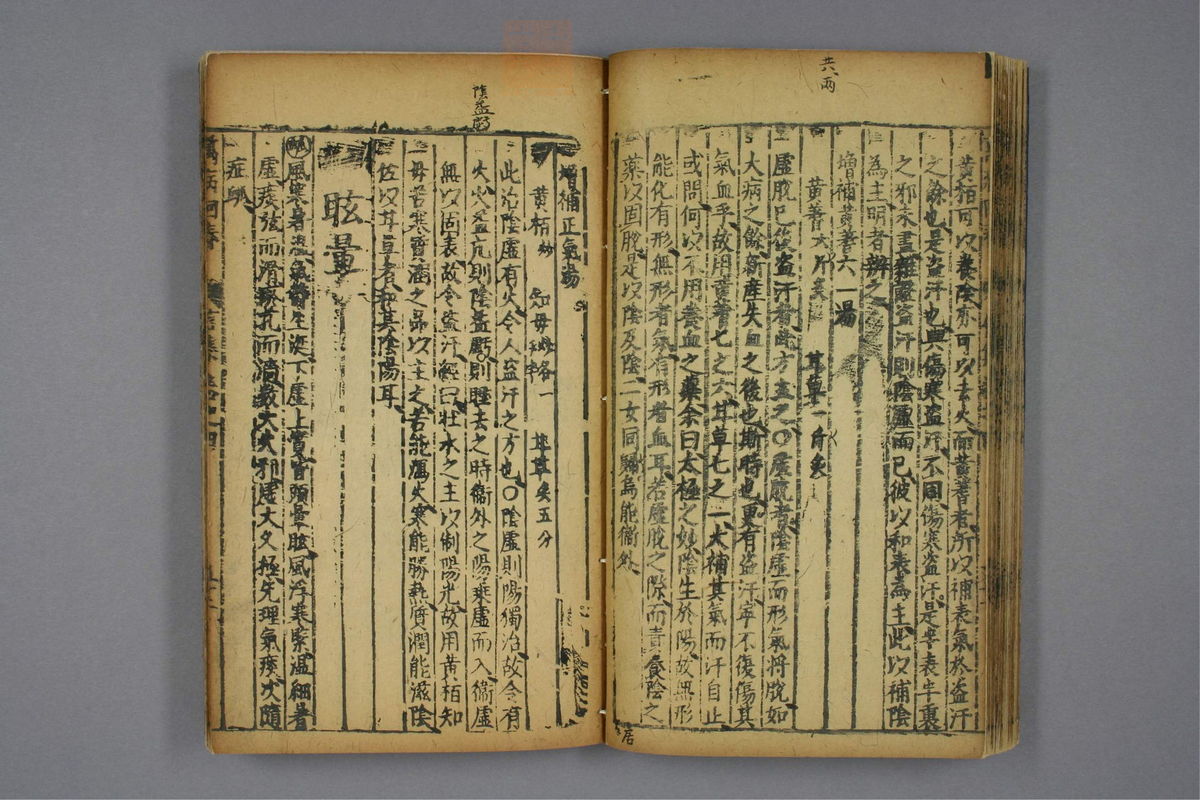 共八兩
黃栢可以養陰亦可以去火而黃蓍者所以補表氣於盜汗
之餘也是盜汗也與傷寒盜汗不同傷寒盜汗是半表半裏
之邪未盡雜證盜汗則陰虛而已彼以和表為主此以補陰
為主明者辨之
增補黃蓍六一湯
黃蓍六斤炙 甘草一斤炙
虛脫已後盜汗者此方主之〇虛脫者陰虛而形氣將脫如
大病之餘新產失血之後也斯時也更有盜汗寧不復傷其
氣血乎故用黃蓍七之六甘草七之一大補其氣而汗自止
或問何以不用養血之藥余曰太極之妙陰生於陽故無形
能化有形無形者氣有形者血耳若虛脫之際而責養陰之
藥以固脫是以陰及陰二女同歸烏能衛外
居
陰益虧
增補正氣湯
黃栢炒 知母炒各一 甘草炙五分
此治陰虛有火令人盜汗之方也〇陰虛則陽獨治故令有
火火益亢則陰益虧則睡去之時衛外之陽乘虛而入衛虛
無以固表故令盜汗經曰壯水之主以制陽光故用黃栢知
母苦寒質潤之品以主之苦能瀉火寒能勝熱質潤能滋陰
佐以甘草者和其陰陽耳
眩暈
風寒暑濕氣鬱生涎下虛上實皆頭暈眩風浮寒緊溫細暑
虛痰弦而滑瘀芤而澁數大火邪虛大久極先理氣痰次隨
症與